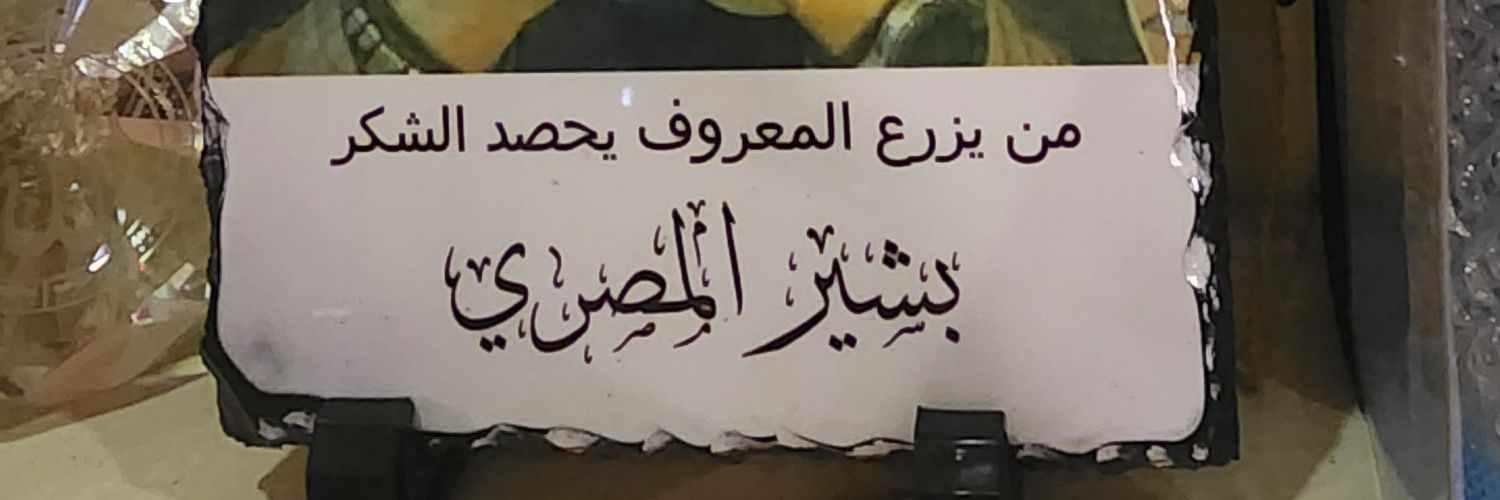 من يزرع المعروف يحصد الشكر
بشير المصري